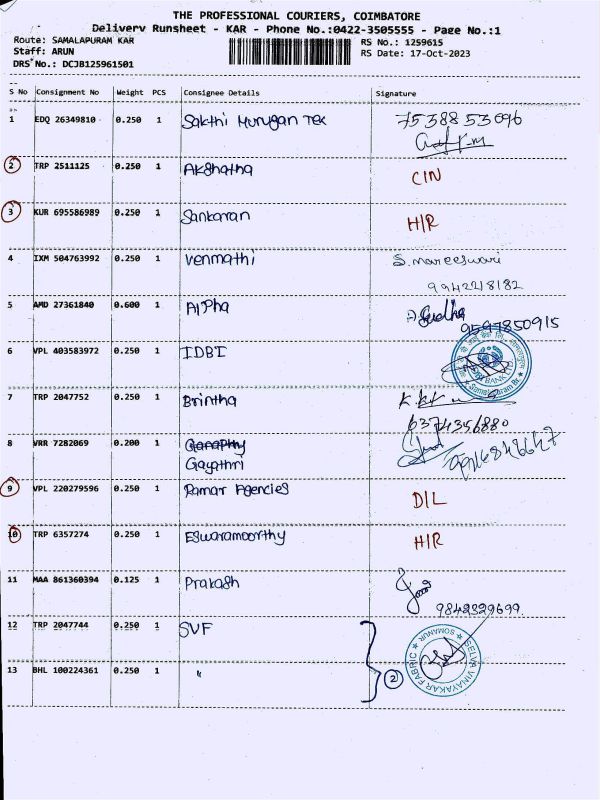 THE PROFESSIONAL COURIERS, COIMBATORE
Delivery Runsheet - KAR - Phone No.:0422-3505555 - Page No.:1
Route: SAMALAPURAM KAR RS No.: 1259615
Staff: ARUN RS Date: 17-Oct-2023
DRS No.: DCJB125961501
S No Consignment No Weight PCS Consignee Details Signature
1 EDQ 26349810 0.250 1 Sakthi Murugan Tex 75388 53096
2 TRP 2511125 0.250 1 Akshatha CIN
3 KUR 695586989 0.250 1 Sankaran H/R
4 IXM 504763992 0.250 1 Venmathi S. mareeswari
9942218182
5 AMD 27361840 0.600 1 Alpha Sudha
9597850915
6 VPL 403583972 0.250 1 IDBI
7 TRP 2047752 0.250 1 Brintha
6374356880
8 VRR 7282069 0.200 1 Ganapthy
Gayathri
9 VPL 220279596 0.250 1 Ramar Agencies D/L
10 TRP 6357274 0.250 1 Eswaramoorthy H/R
11 MAA 861360394 0.125 1 Prakash
9842329699
12 TRP 2047744 0.250 1 SVF
13 BHL 100224361 0.250 1 "
2
SELVA VINAYAKAR FABRIC
SOMANUR